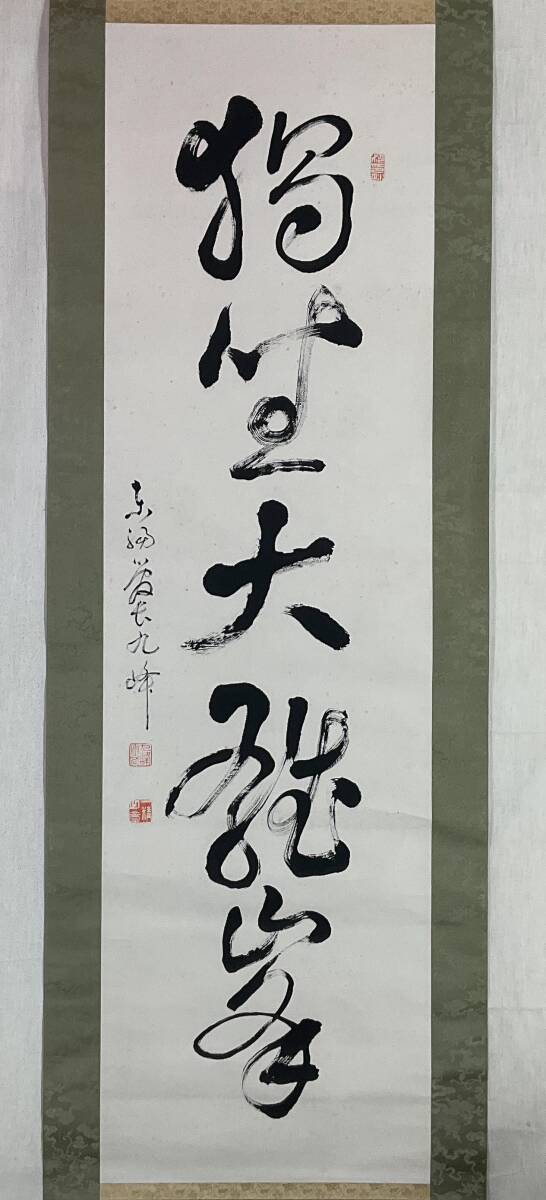 獨坐大雄峯
東福管長九峰